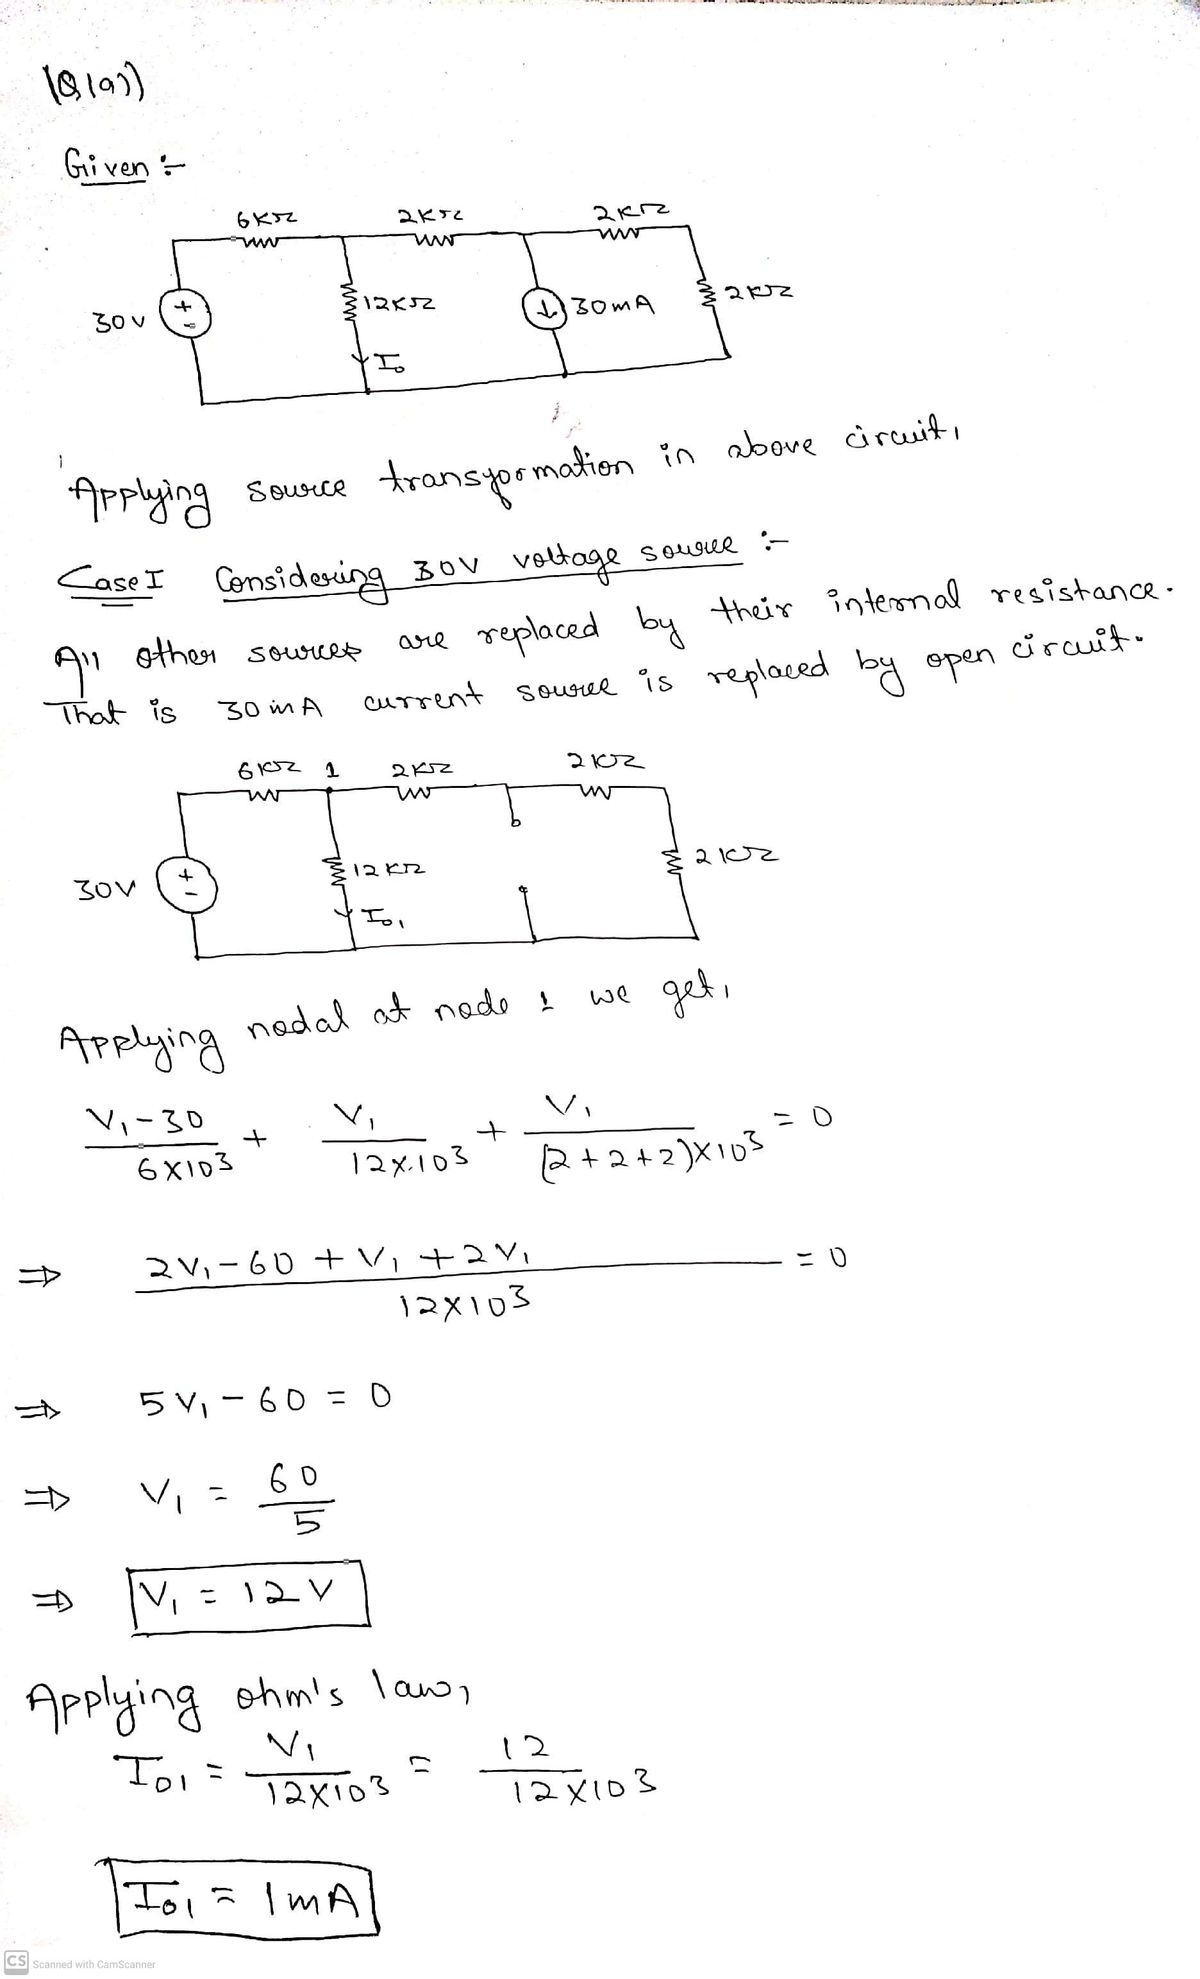 1Q1a))
Given :-
6KΩ 2KΩ 2KΩ
30V + - 12KΩ 30mA 2KΩ
I₀
Applying source transformation in above circuit,
Case I Considering 30V voltage source :-
All other sources are replaced by their internal resistance.
That is 30mA current source is replaced by open circuit.
6KΩ 1 2KΩ 2KΩ
30V + - 12KΩ 2KΩ
I₀₁
Applying nodal at node 1 we get,
V₁-30 / 6×10³ + V₁ / 12×10³ + V₁ / (2+2+2)×10³ = 0
⇒ 2V₁-60 + V₁ + 2V₁ / 12×10³ = 0
⇒ 5V₁ - 60 = 0
⇒ V₁ = 60 / 5
⇒ V₁ = 12V
Applying ohm's law,
I₀₁ = V₁ / 12×10³ = 12 / 12×10³
I₀₁ = 1mA
CS Scanned with CamScanner